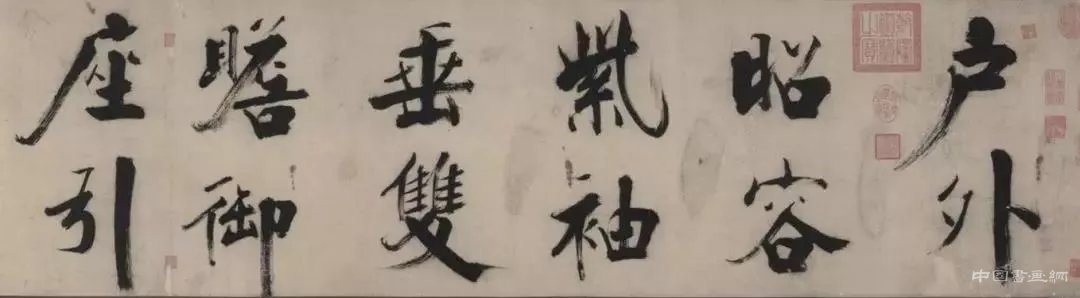 户外
昭容
紫袖
垂雙
瞻御
座引
中国書画網